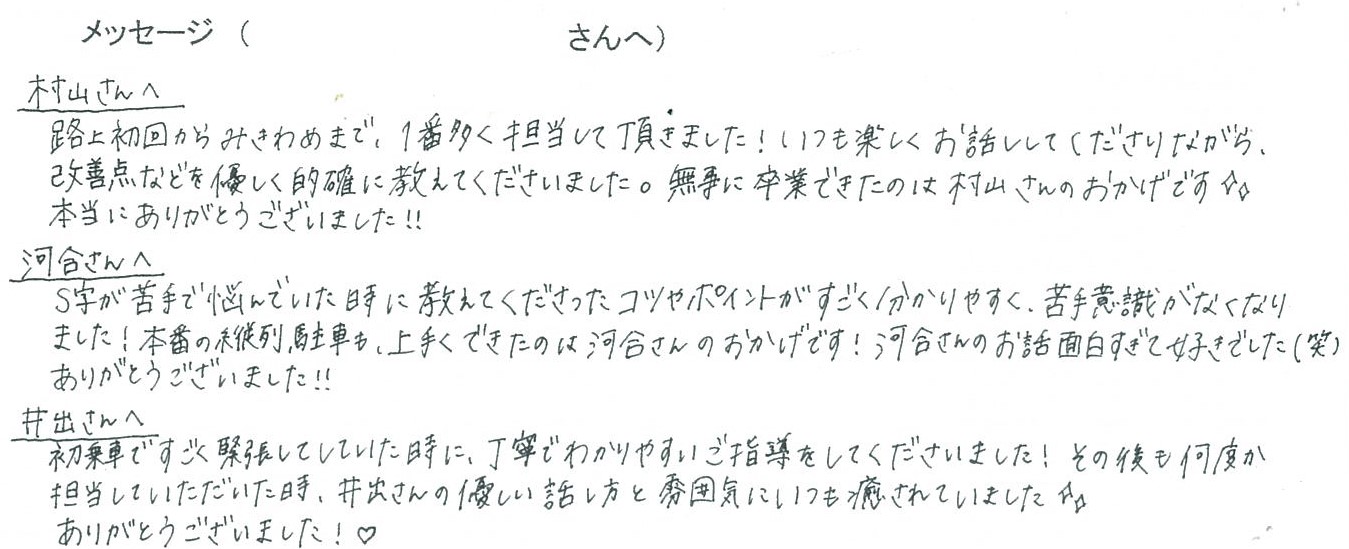 メッセージ ( さんへ)
村山さんへ
路上初回からみきわめまで、1番多く担当して頂きました！いつも楽しくお話しして くださりながら、
改善点などを優しく的確に教えてくださいました。無事に卒業できたのは村山さんのおかげです☆☆
本当にありがとうございました!!
河合さんへ
S字が苦手で悩んでいた時に教えてくださったコツやポイントがすごく分かりやすく、苦手意識がなくなり
ました！本番の縦列駐車も、上手くできたのは河合さんのおかげです！河合さんのお話面白すぎて好きでした(笑)
ありがとうございました!!
井出さんへ
初乗車ですごく緊張してしていた時に、丁寧でわかりやすいご指導をしてくださいました！その後も何度か
担当していただいた時、井出さんの優しい話し方と雰囲気にいつも癒されていました☆☆
ありがとうございました！♡